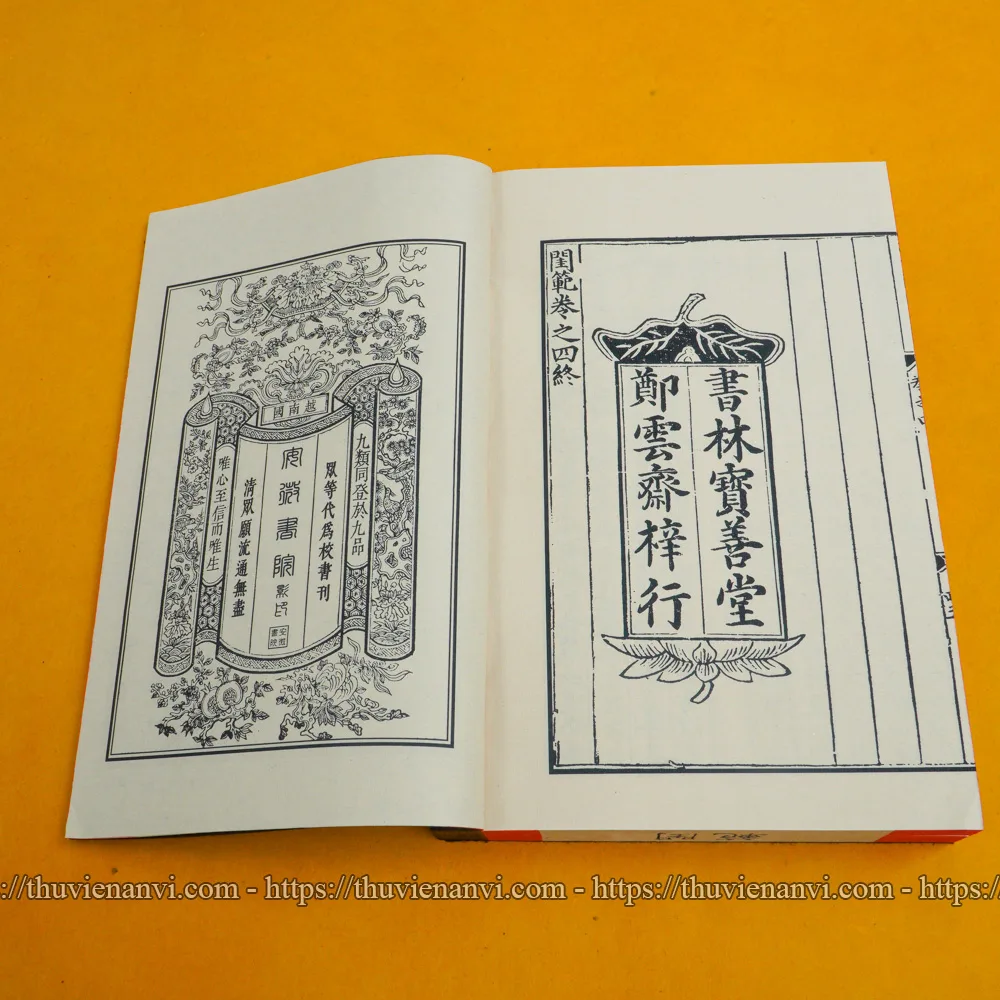 書林寶善堂
鄭雲齋梓行
閨範卷之四終
越南國
九類同登於九品
眾等代爲校書刊
安微書院影印
清眾願流通無盡
唯心至信而唯生
://thuvienanvi.com - https://thuvienanvi.com - https://thuvienanvi.com - https:/